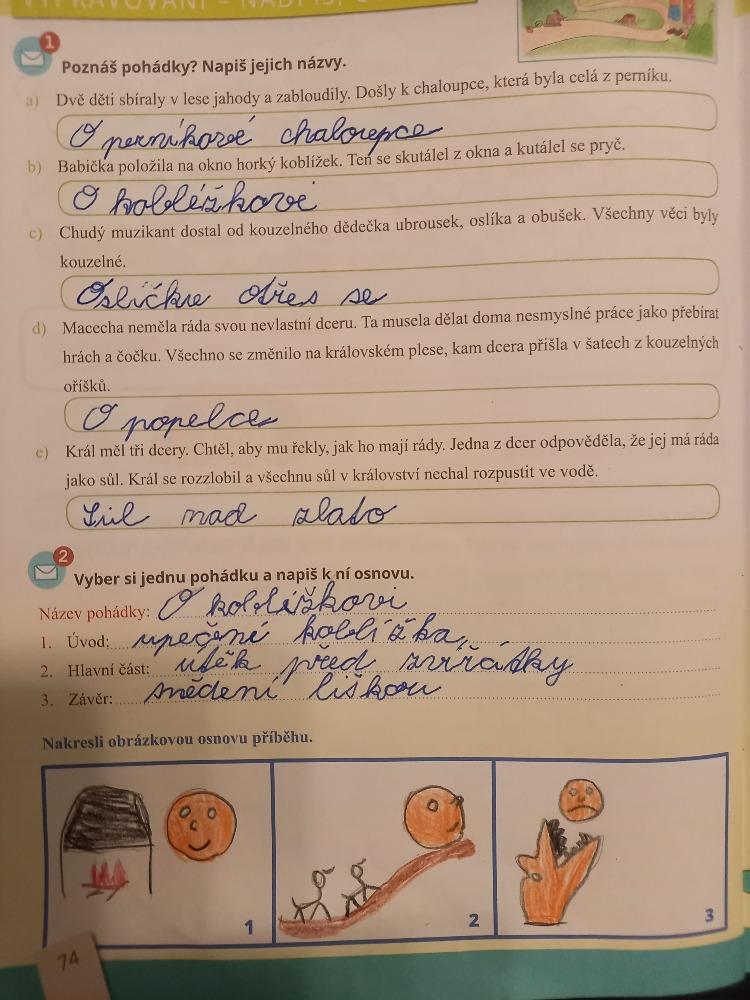 VYPRAVOVÁNÍ – NADPIS, O
1
Poznáš pohádky? Napiš jejich názvy.
a) Dvě děti sbíraly v lese jahody a zabloudily. Došly k chaloupce, která byla celá z perníku.
O perníkové chaloupce
b) Babička položila na okno horký koblížek. Ten se skutálel z okna a kutálel se pryč.
O koblížkovi
c) Chudý muzikant dostal od kouzelného dědečka ubrousek, oslíka a obušek. Všechny věci byly
kouzelné.
Oslíčku otřes se
d) Macecha neměla ráda svou nevlastní dceru. Ta musela dělat doma nesmyslné práce jako přebírat
hrách a čočku. Všechno se změnilo na královském plese, kam dcera přišla v šatech z kouzelných
oříšků.
O popelce
e) Král měl tři dcery. Chtěl, aby mu řekly, jak ho mají rády. Jedna z dcer odpověděla, že jej má ráda
jako sůl. Král se rozzlobil a všechnu sůl v království nechal rozpustit ve vodě.
Sůl nad zlato
2
Vyber si jednu pohádku a napiš k ní osnovu.
Název pohádky: O koblížkovi
1. Úvod: upečení koblížka,
2. Hlavní část: útěk před zvířátky
3. Závěr: snědení liškou
Nakresli obrázkovou osnovu příběhu.
1 2 3
74